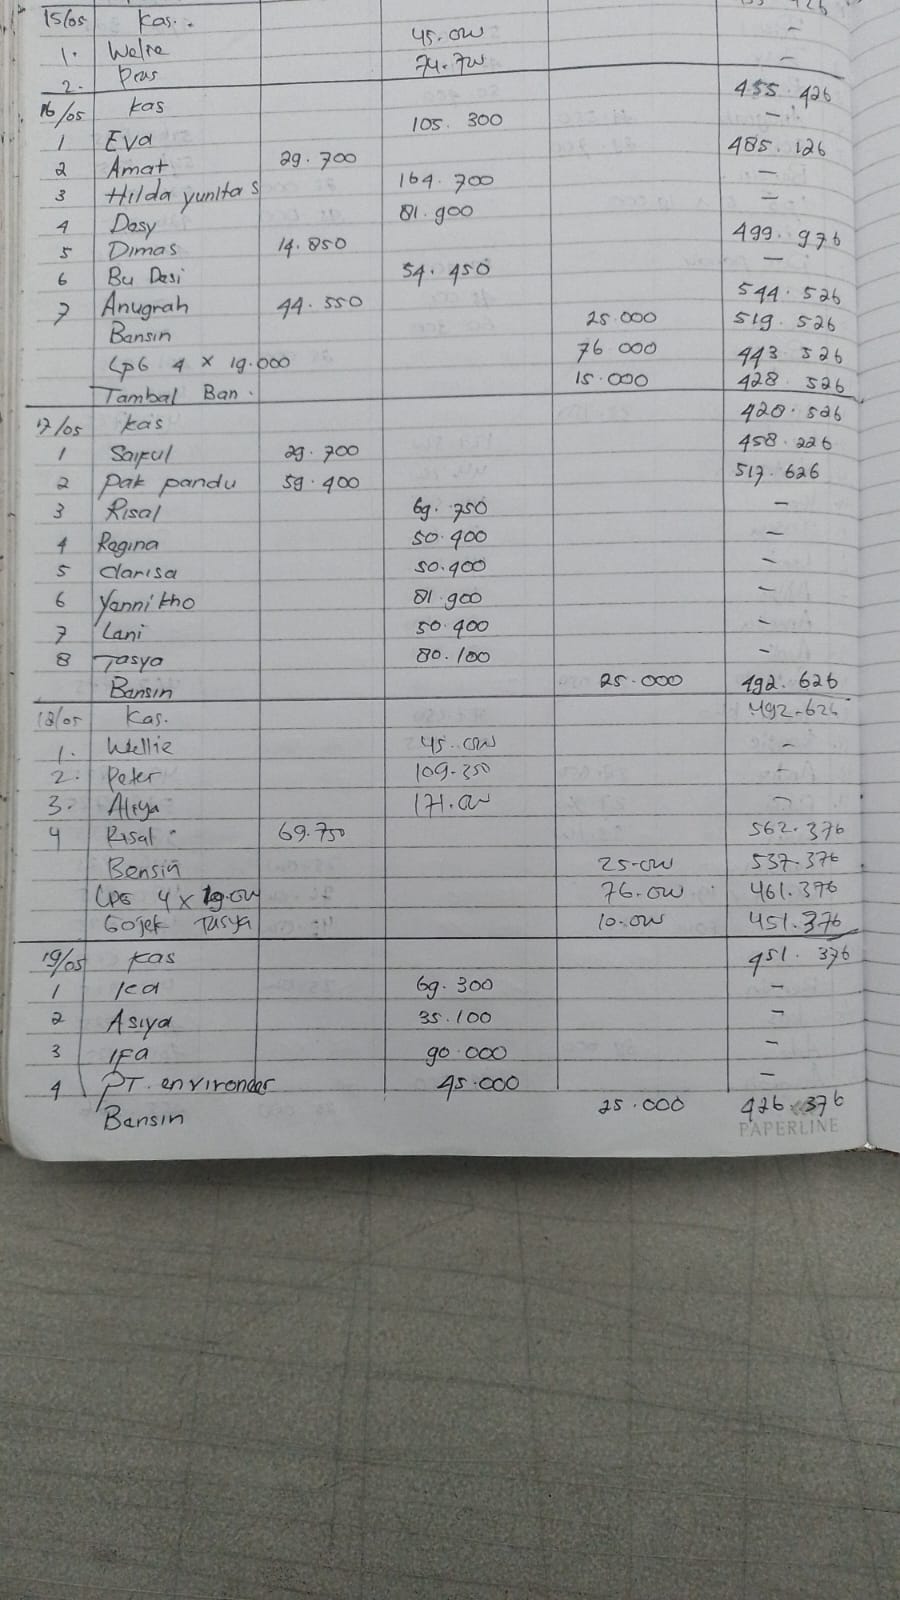 15/05 Kas.
1. Welie 45.000 -
2. Pras 74.700 -
16/05 kas 455.426
1 Eva 105.300 -
2 Amat 29.700 485.126
3 Hilda yunita S 164.700 -
4 Desy 81.900 -
5 Dimas 14.850 499.976
6 Bu Desi 54.450 -
7 Anugrah 44.550 544.526
Bansin 25.000 519.526
Lpg 4 x 19.000 76 000 443 526
Tambal Ban. 15.000 428.526
17/05 kas 428.526
1 Saiful 29.700 458.226
2 pak pandu 59.400 517.626
3 Risal 69.750 -
4 Regina 50.400 -
5 Clarisa 50.400 -
6 Yanni kho 81.900 -
7 Lani 50.400 -
8 Tasya 80.100 -
Bansin 25.000 492.626
18/05 Kas. 492.626
1. Wellie 45.000 -
2. Peter 109.350
3. Aliya 171.000 -
4 Risal 69.750 562.376
Bensin 25.000 537.376
LPG 4 x 19.000 76.000 461.376
Gojek Tasya 10.000 451.376
19/05 kas 451.376
1 Ica 69.300 -
2 Asiya 35.100 -
3 IFa 90.000 -
4 PT. 45.000 -
Bansin 25.000 426.376
PAPERLINE